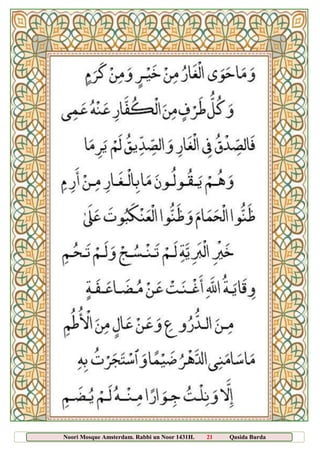 وَمَا حَوَى الْغَارُ مِنْ خَيْرٍ وَمِنْ كَرَمٍ
وَكُلُّ طَرْفٍ مِنَ الْكُفَّارِ عَنْهُ عَمِى
فَالصِّدْقُ فِى الْغَارِ وَالصِّدِّيقُ لَمْ يَرِمَا
وَهُمْ يَقُولُونَ مَا بِالْغَارِ مِنْ أَرِمِ
ظَنُّوا الْحَمَامَ وَظَنُّوا الْعَنْكَبُوتَ عَلَى
خَيْرِ الْبَرِيَّةِ لَمْ تَنْسُجْ وَلَمْ تَحُمِ
وِقَايَةُ اللهِ أَغْنَتْ عَنْ مُضَاعَفَةٍ
مِنَ الدُّرُوعِ وَعَنْ عَالٍ مِنَ الْأُطُمِ
مَاسَامَنِى الدَّهْرُ ضَيْمًا وَاسْتَجَرْتُ بِهِ
إِلَّا وَنِلْتُ جِوَارًا مِنْهُ لَمْ يُضَمِ
Noori Mosque Amsterdam. Rabbi un Noor 1431H. 21 Qasida Burda